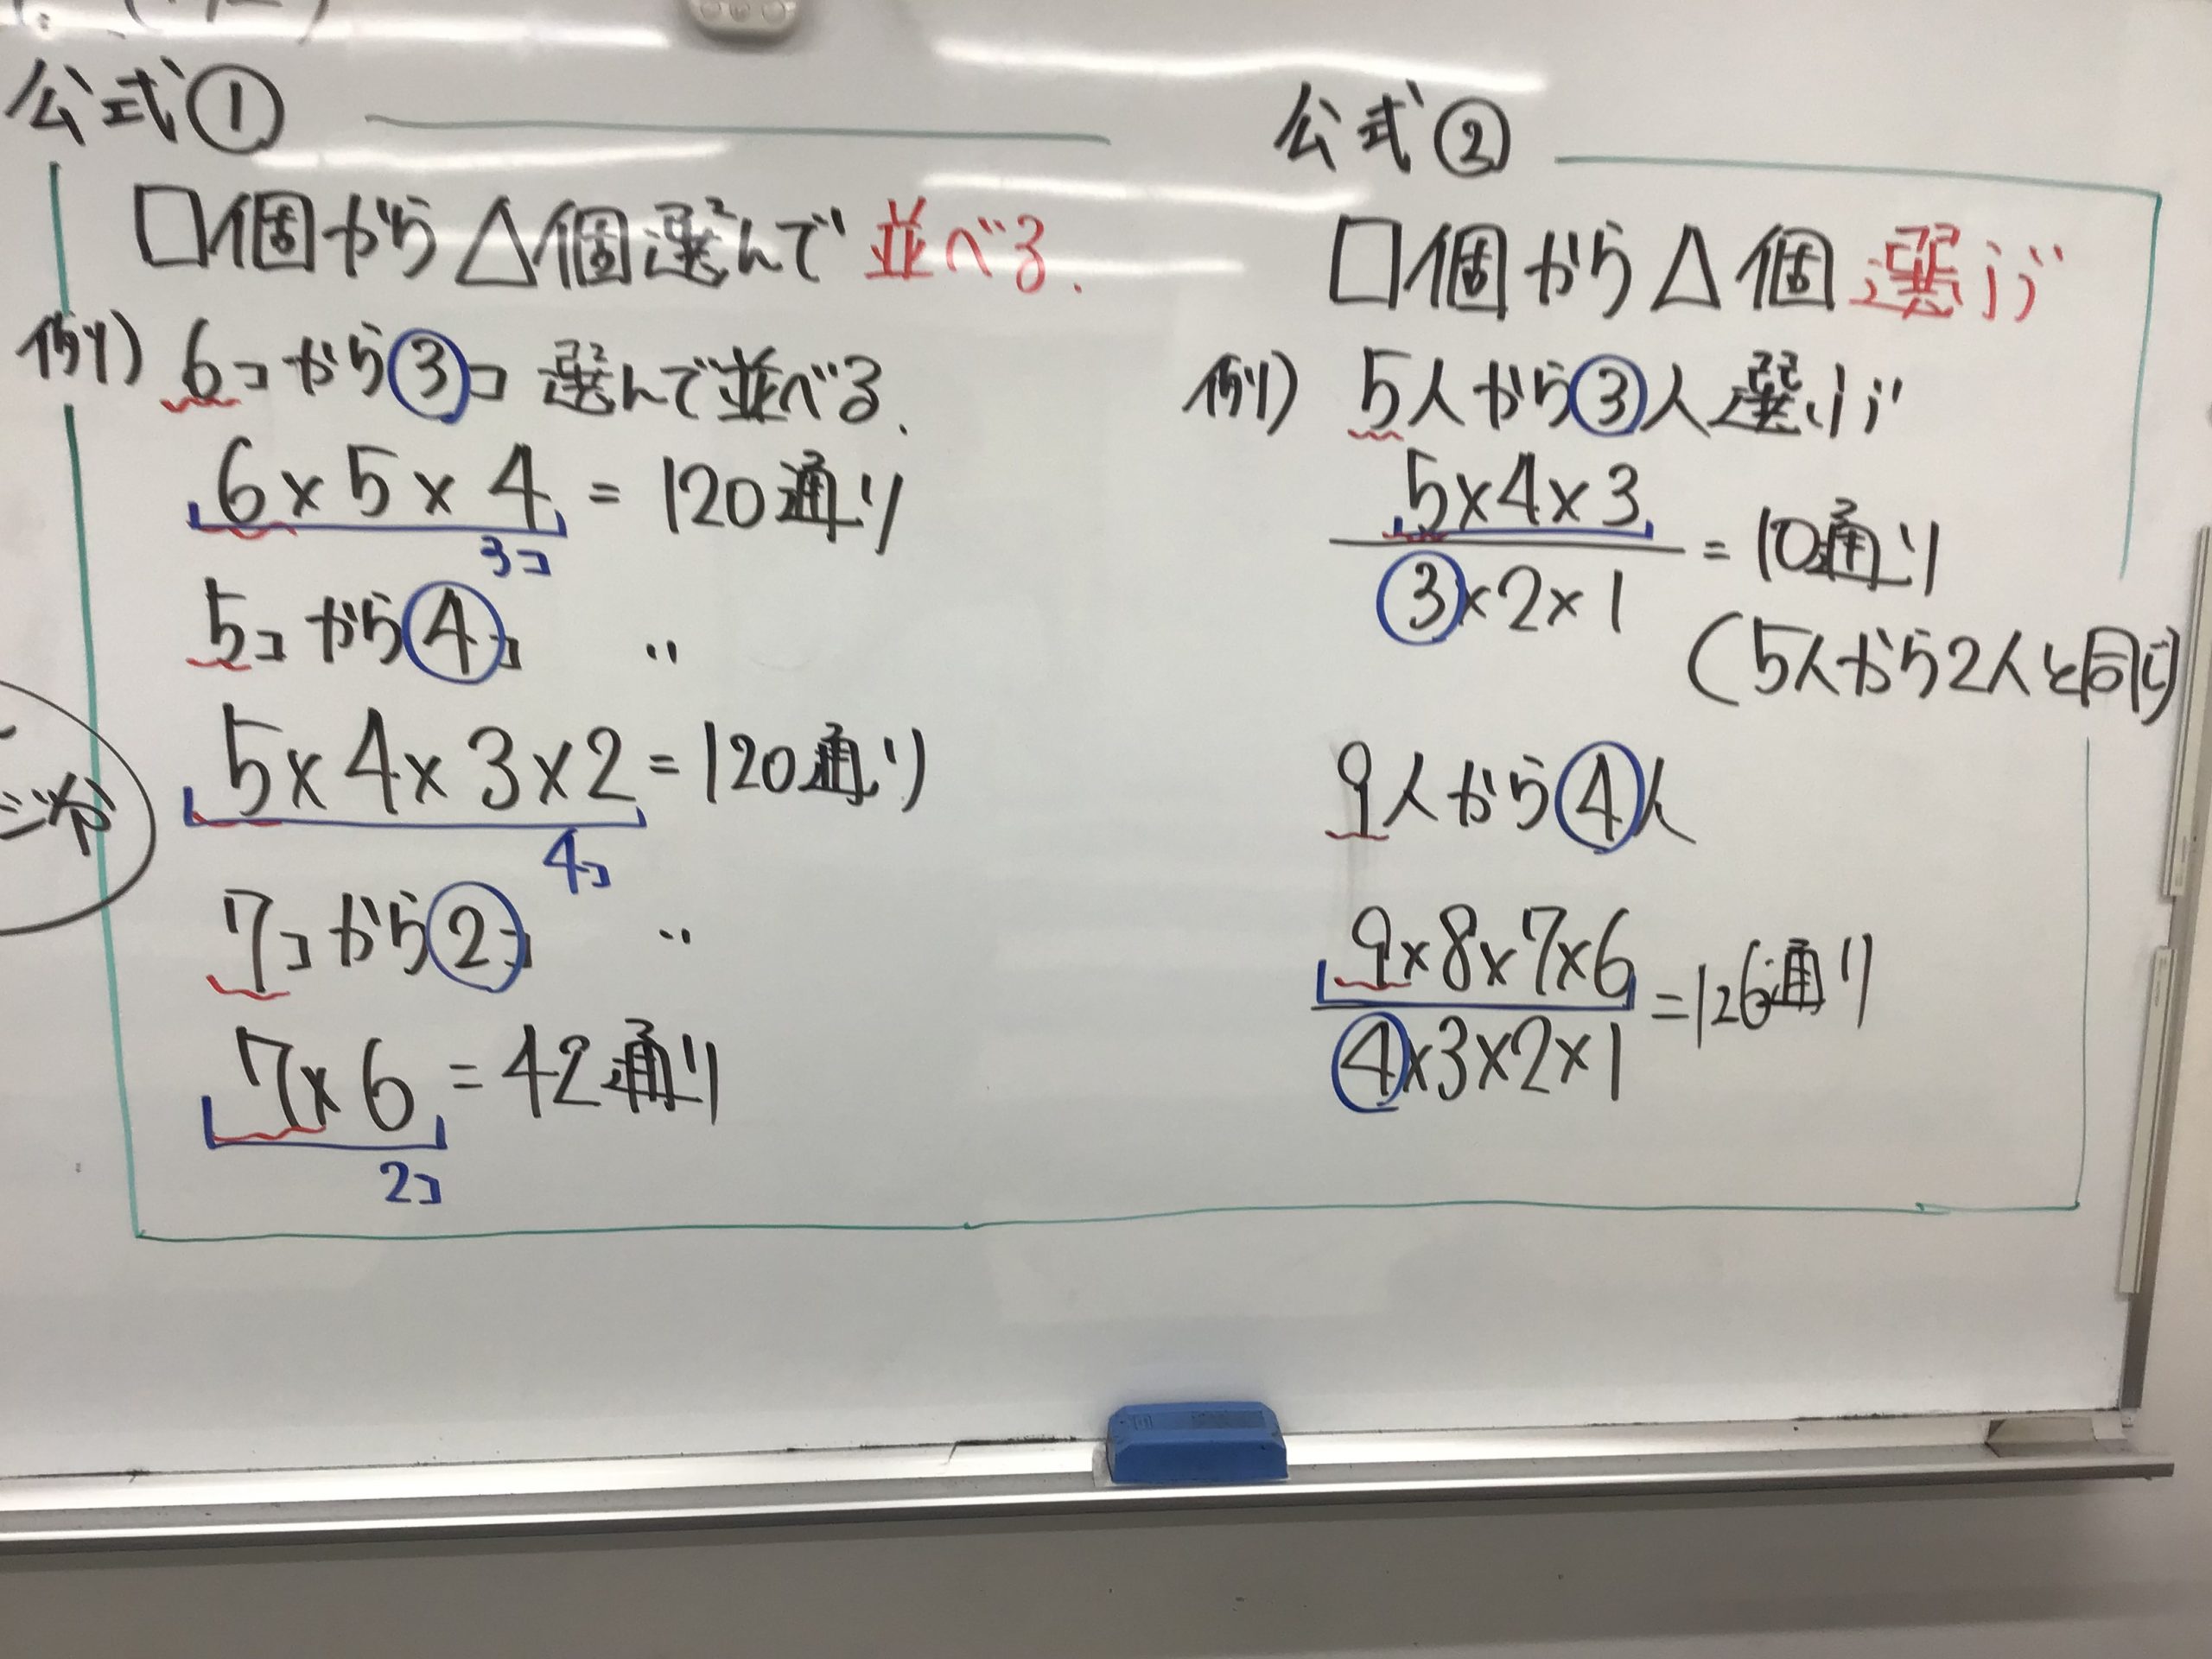 公式①
□個から△個選んで並べる.
例) 6コから③コ 選んで並べる.
6×5×4 = 120通り
3コ
5コから④コ 〃
5×4×3×2 = 120通り
4コ
7コから②コ 〃
7×6 = 42通り
2コ
公式②
□個から△個 選ぶ
例) 5人から③人選ぶ
5×4×3
③×2×1
= 10通り
(5人から2人と同じ)
9人から④人
9×8×7×6
④×3×2×1
=126通り